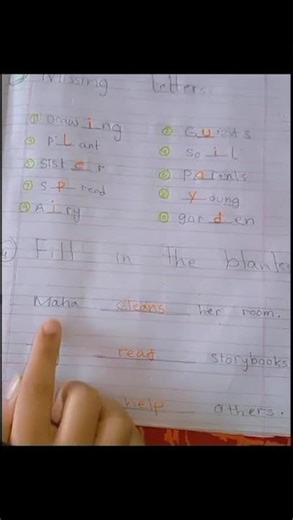 Missing letters:
① Drawing ② Guests
③ PLant ④ Soil
⑤ Sister ⑥ Parents
⑦ Spread ⑧ Young
⑨ Airy ⑩ garden
④ Fill in The blanks
Maha cleans her room.
read storybooks
help others.